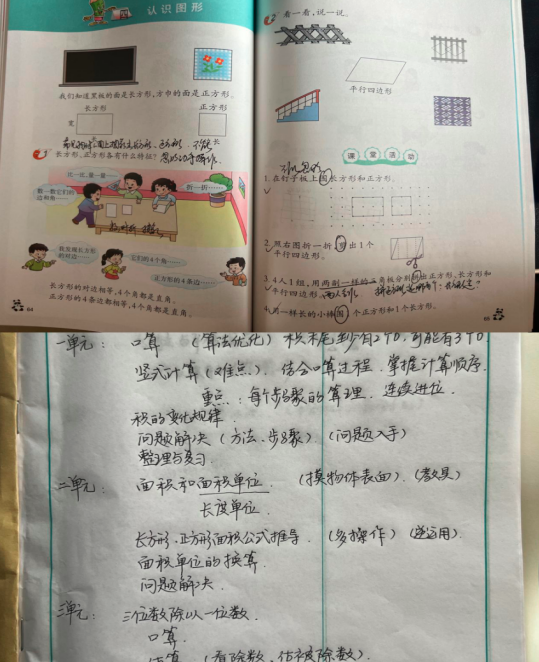 四
认识图形
我们知道黑板的面是长方形,方巾的面是正方形。
长方形
正方形
宽
长
长方形、正方形各有什么特征?
比一比,量一量……
折一折……
数一数它们的边和角……
我发现长方形的对边……
它们的4个角……
正方形的4条边……
长方形的对边相等,4个角都是直角。
正方形的4条边都相等,4个角都是直角。
64
2
看一看,说一说。
平行四边形
课堂活动
1.在钉子板上围长方形和正方形。
2.照右图折一折,剪出1个平行四边形。
3.4人1组,用两副一样的三角板分别拼出正方形、长方形和平行四边形。
4.用一样长的小棒围1个正方形和1个长方形。
65
一单元: 口算 (算法优化) 积末尾至少有2个0,可能有3个0.
竖式计算(难点). 结合口算过程 掌握计算顺序.
重点: 每个步骤的算理. 连续进位.
积的变化规律.
问题解决(方法、步骤). (问题入手)
整理与复习.
二单元: 面积和面积单位. (摸物体表面). (教具)
长度单位.
长方形、正方形面积公式推导. (多操作) (逆运用).
面积单位的换算.
问题解决.
三单元: 三位数除以一位数.
口算.
估算 (看除数、估被除数).